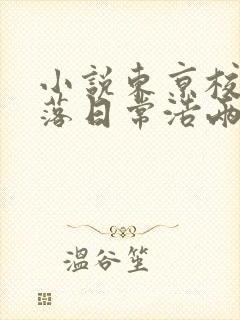 小説東京校
落日常活雨
溫谷笙